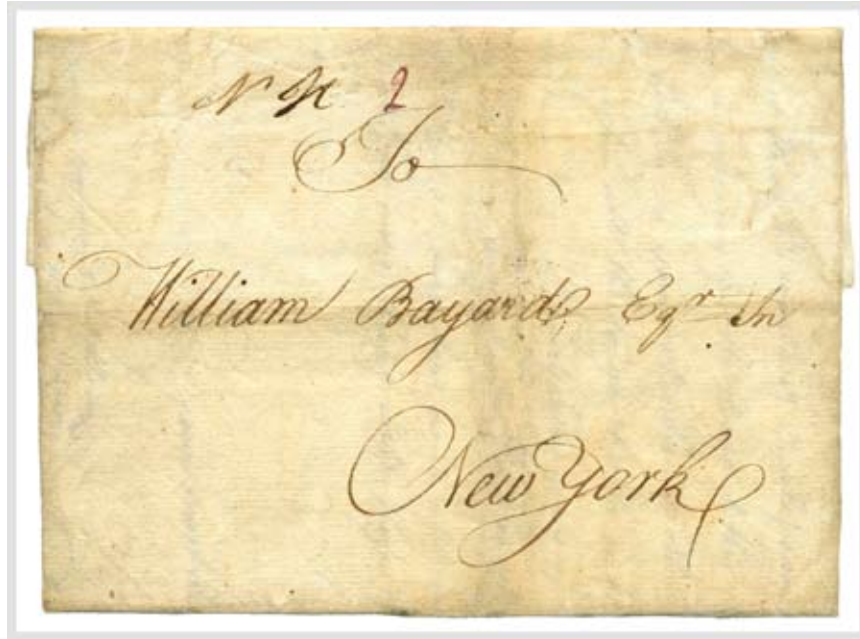 N Y 2
To
William Bayard Eqr In
New York